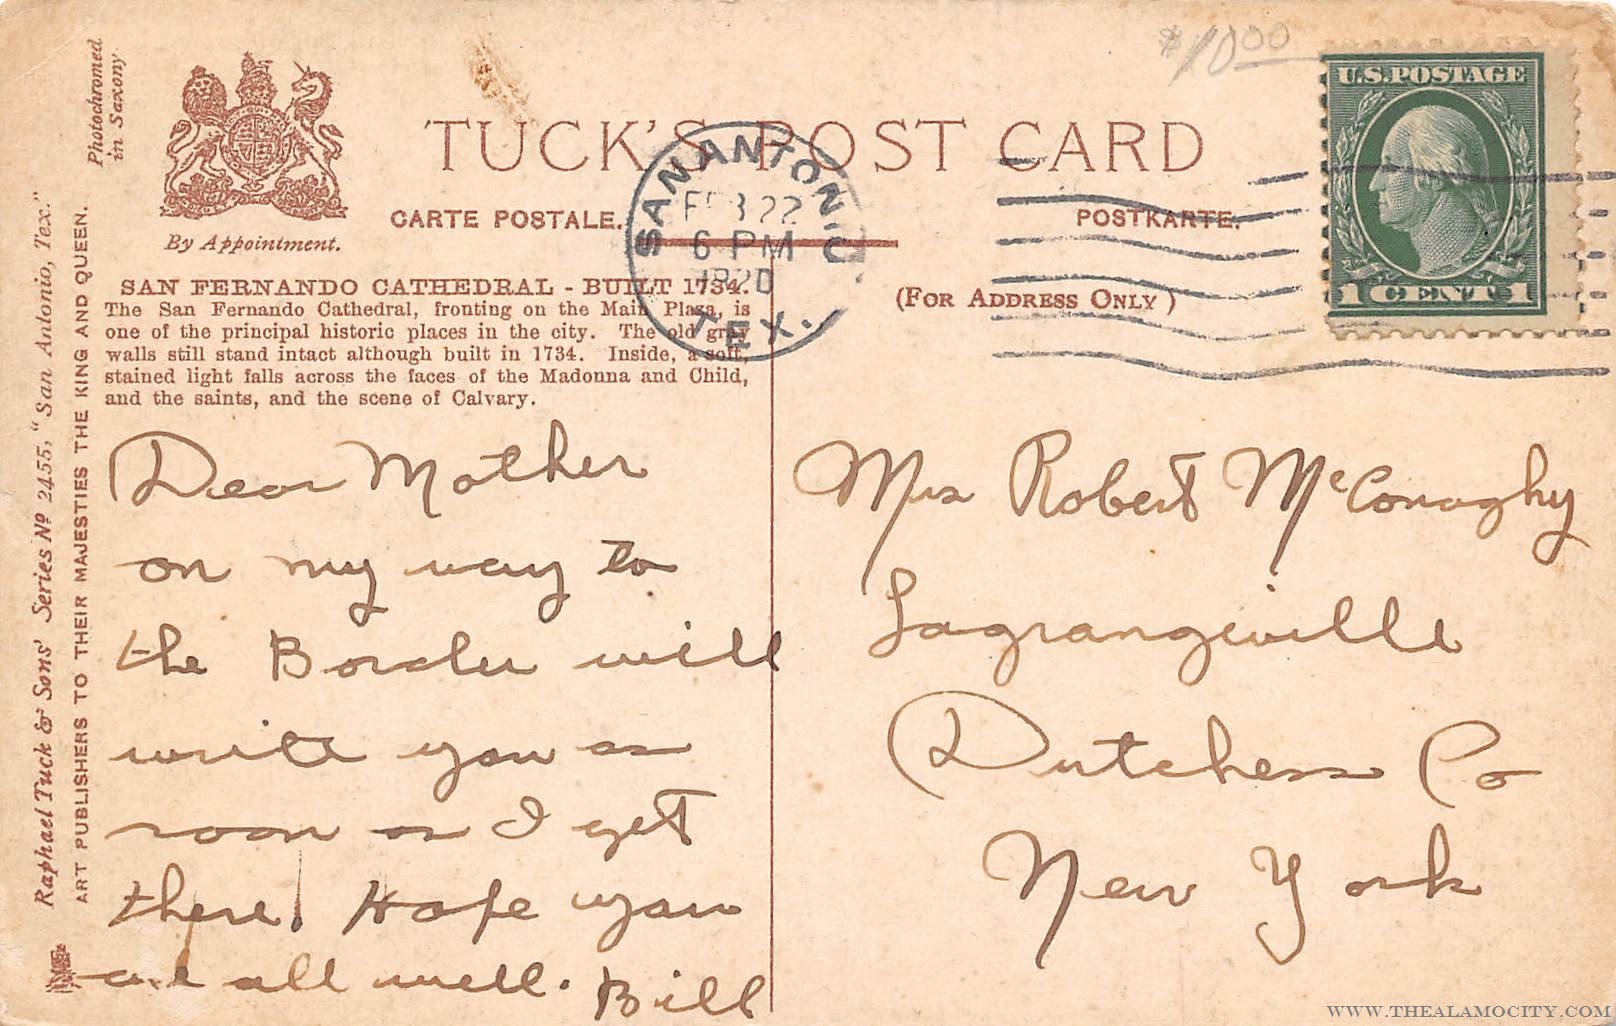 $10.00
Photochromed
in Saxony
By Appointment.
TUCK'S POST CARD
CARTE POSTALE.
POSTKARTE.
(FOR ADDRESS ONLY)
U.S. POSTAGE
1 CENT 1
SAN ANTONIO,
FEB 22
6 PM
1920
TEX.
SAN FERNANDO CATHEDRAL - BUILT 1734.
The San Fernando Cathedral, fronting on the Main Plaza, is
one of the principal historic places in the city. The old gray
walls still stand intact although built in 1734. Inside, a soft,
stained light falls across the faces of the Madonna and Child,
and the saints, and the scene of Calvary.
Raphael Tuck & Sons' Series Nº 2455, "San Antonio, Tex."
ART PUBLISHERS TO THEIR MAJESTIES THE KING AND QUEEN.
Dear Mother
on my way to
the Border will
write you as
soon as I get
there. Hope you
are all well. Bill
Mrs Robert McConaghy
Lagrangeville
Dutchess Co
New York
WWW.THEALAMOCITY.COM